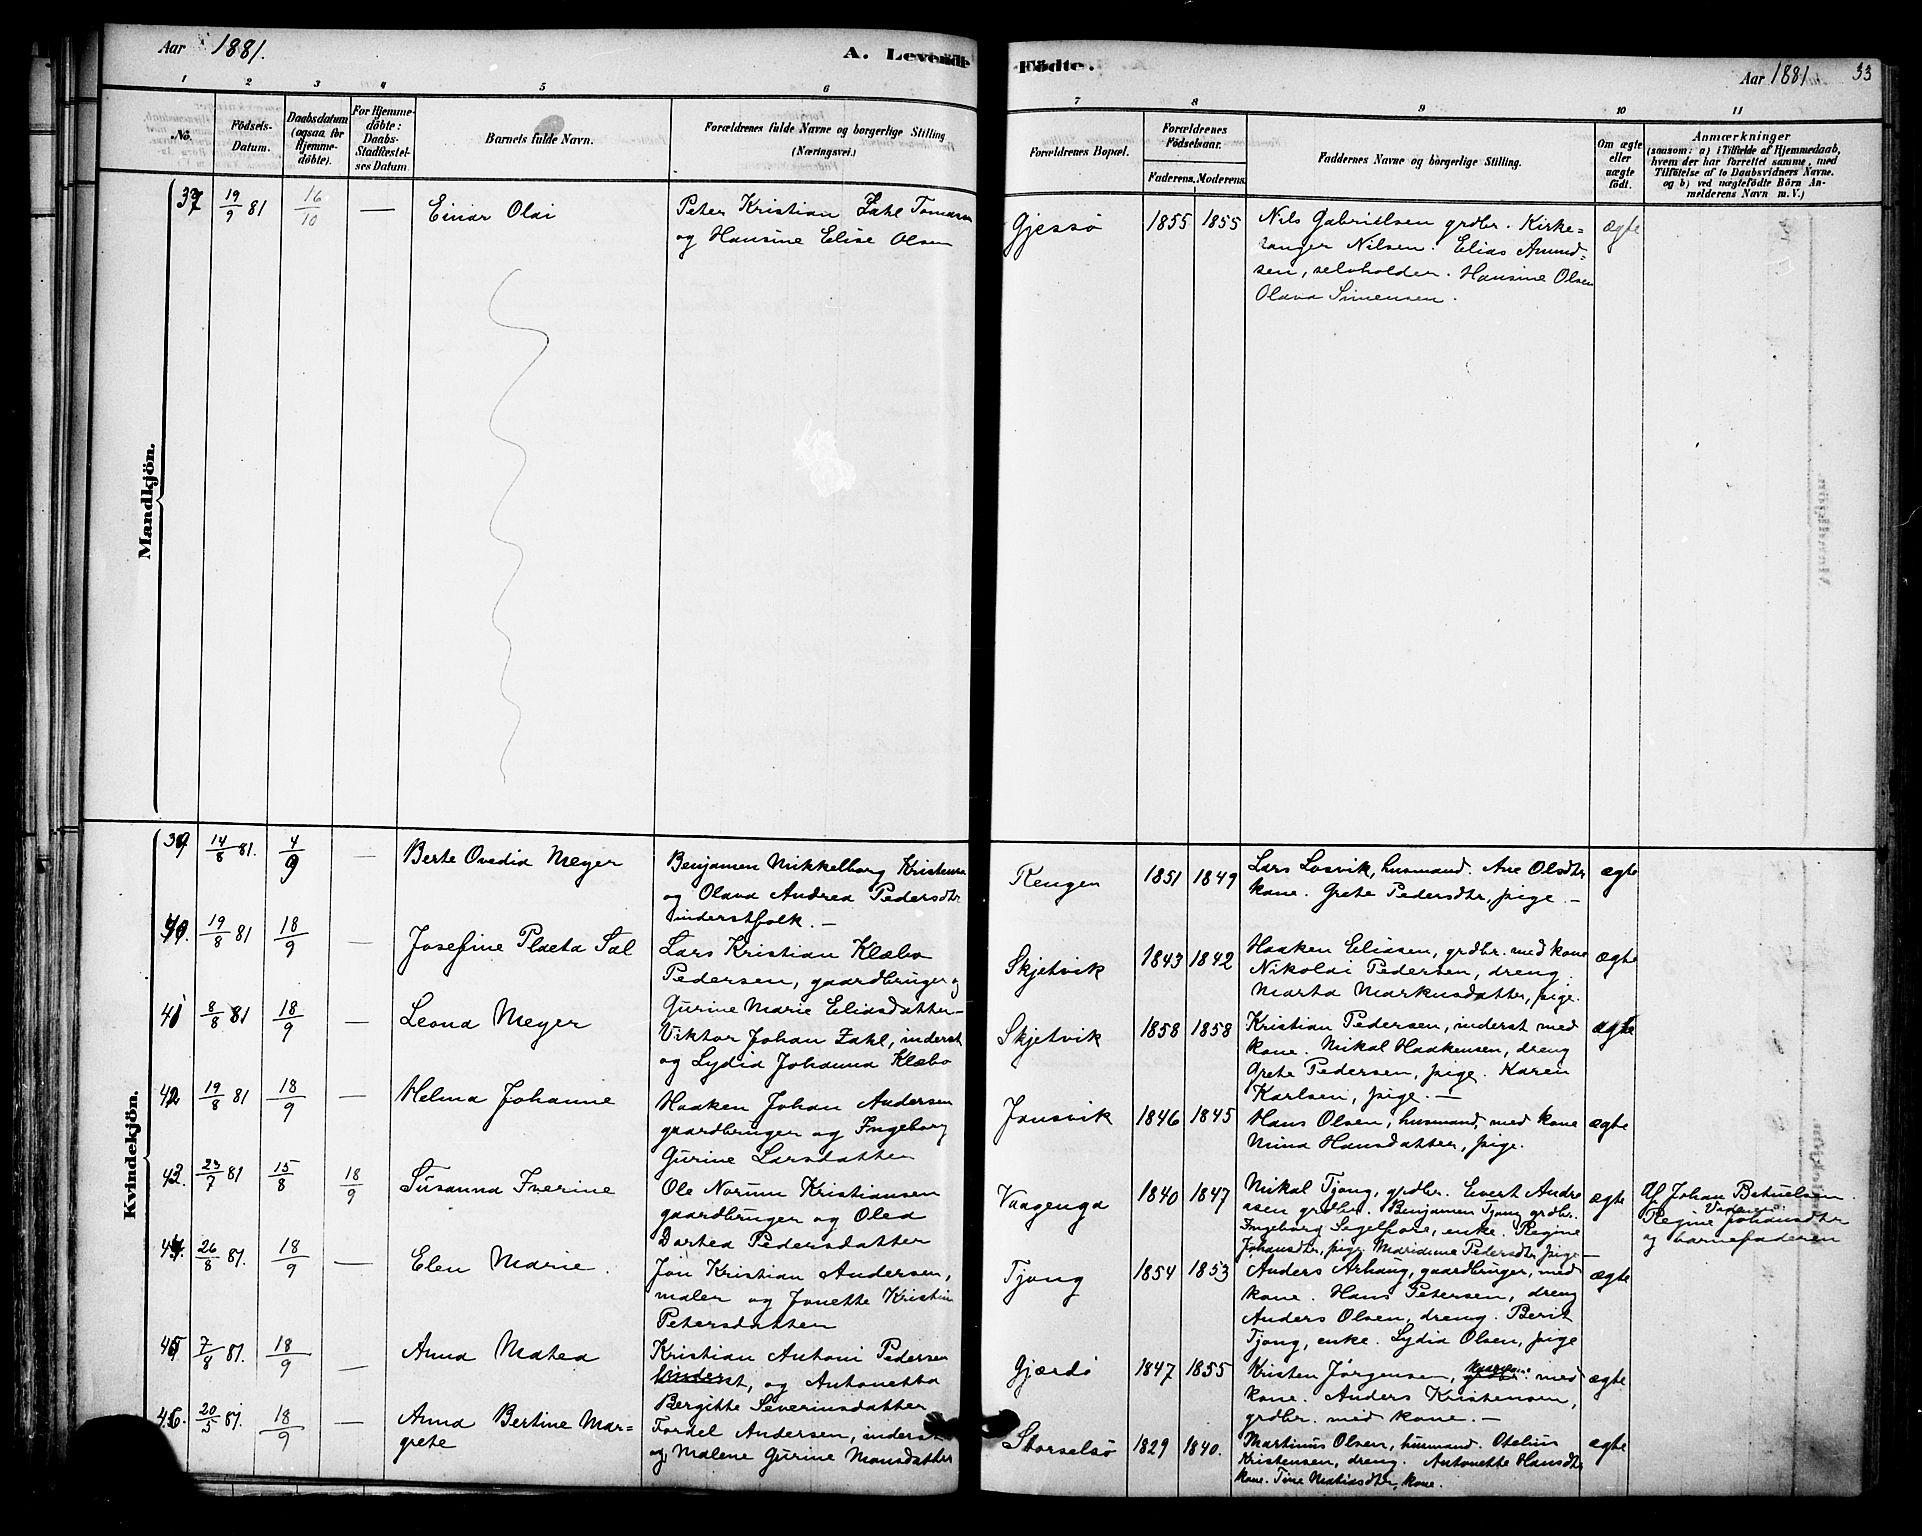 Aar 1881.
A. Levende Födte.
Aar 1881
33
1 2 3 4 5 6 7 8 9 10 11
No.
Födsels-Datum.
Daabsdatum (ogsaa for Hjemmedöbte).
For Hjemmedöbte: Daabs-Stadfæstelses Datum.
Barnets fulde Navn.
Forældrenes fulde Navne og borgerlige Stilling
(Næringsvei.)
Forældrenes Bopæl.
Forældrenes Födselsaar.
Faderens. Moderens.
Faddernes Navne og borgerlige Stilling.
Om ægte eller uægte födt.
Anmærkninger
(saasom: a) i Tilfælde af Hjemmedaab,
hvem der har forrettet samme, med
Tilföielse af to Daabsvidners Navne.
og b) ved uægtefödte Börn An-
melderens Navn m. V.)
Mandkjön.
37 19/9 81 16/10 — Einar Olai
Peter Kristian Zahl Tomassen
og Hansine Elise Olsen
Gjessø 1855 1855
Nils Gabrielsen grdbr. Kirke=
sanger Nilsen. Elias Amund=
sen, selvholder. Hansine Olsen
Olava Simensen.
ægte
Kvindekjön.
39 14/8 81. 4/9 — Berte Ovedia Meyer
Benjamen Mikkelborg Kristensen
og Olava Andrea Pedersdtr
inderstfolk. —
Rengen 1851 1849
Lars Losvik, husmand. Ane Olsdtr
kone. Grete Pedersdtr, pige. —
ægte
40. 19/8 81 18/9 — Josefine Plaeta Sal
Lars Kristian Klæbo
Pedersen, gaardbruger og
Gurine Marie Eliasdatter —
Skjetvik 1843 1842
Haaken Eliasen, grdbr. med kone
Nikolai Pedersen, dreng.
Marta Markusdatter, pige.
ægte
41 8/8 81 18/9 — Leona Meyer
Viktor Johan Zahl, inderst
og Lydia Johanna Klæbo
Skjetvik 1858 1858
Kristian Pedersen, inderst med
kone. Mikal Haakensen, dreng
Grete Pedersen, pige. Karen
Karlsen, pige. —
ægte
42 19/8 81 18/9 — Helma Johanne
Haaken Johan Andersen
gaardbruger og Ingeborg
Gurine Larsdatter
Jonsvik 1846 1845
Hans Olsen, husmand, med kone
Mina Hansdatter, pige.
ægte
43. 23/7 81 15/8 18/9 Susanna Iverine
Ole Norum Kristiansen
gaardbruger og Olea
Dortea Pedersdatter
Vaagenga 1840 1847
Mikal Tjong, grdbr. Evert Andre
asen grdbr. Benjamen Tjong grdbr.
Ingeborg Segelfore, enke. Regine
Johansdtr, pige. Maridine Pedersdtr pige —
ægte
Af Johan Betuelsen.
Vidner:
Regine Johansdtr
og barnefaderen
44. 26/8 81. 18/9 — Elen Marie.
Jon Kristian Andersen,
maler og Jonette Kristine
Petersdatter
Tjong 1854 1853
Anders Arhaug, gaardbruger, med
kone. Hans Petersen, dreng
Anders Olsen, dreng. Berit
Tjong, enke. Lydia Olsen, pige
ægte
45 7/8 81. 18/9 — Anna Matea
Kristian Antoni Pedersen
inderst, og Antonetta
Bergitte Severinsdatter
Gjærdø 1847 1855
Kristen Jørgensen, med
kone. Anders Kristensen,
grdbr. med kone. —
ægte
46. 20/5 81. 18/9 — Anna Bertine Mar=
grete
Fordel Andersen, inderst
og Malene Gurine Monsdatter
Storselsø 1829 1840.
Martinus Olsen, husmand. Otelius
Kristensen, dreng. Antonette Hansdtr
kone. Tine Matiasdtr, kone.
ægte